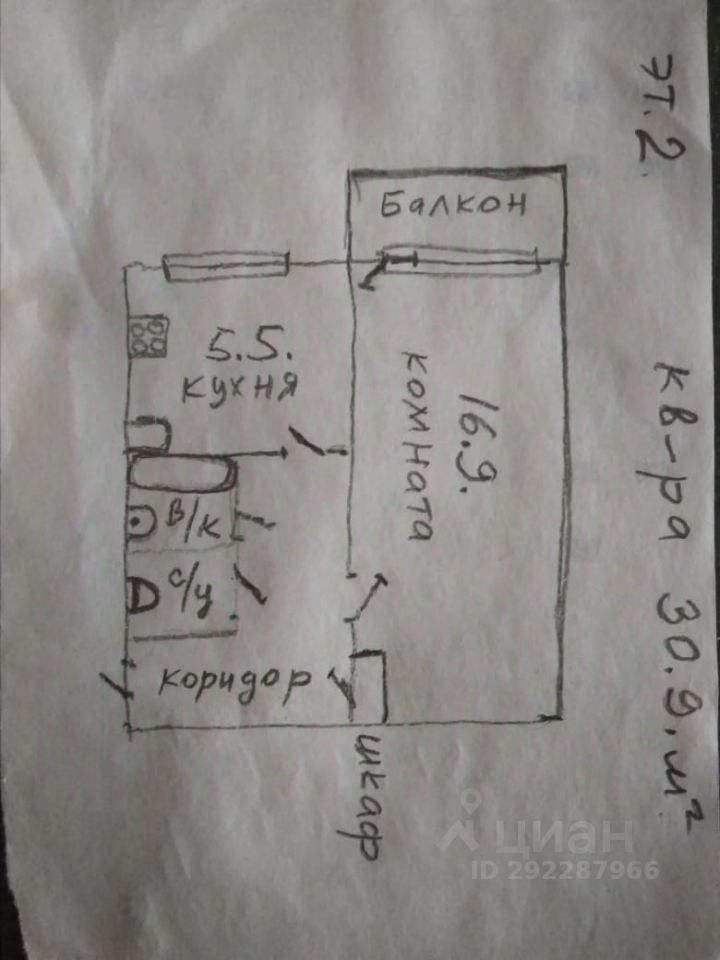 эт. 2
кв-ра 30.9. м²
Балкон
5.5.
кухня
16.9.
комната
в/к
с/у
коридор
шкаф
циан
ID 292287966